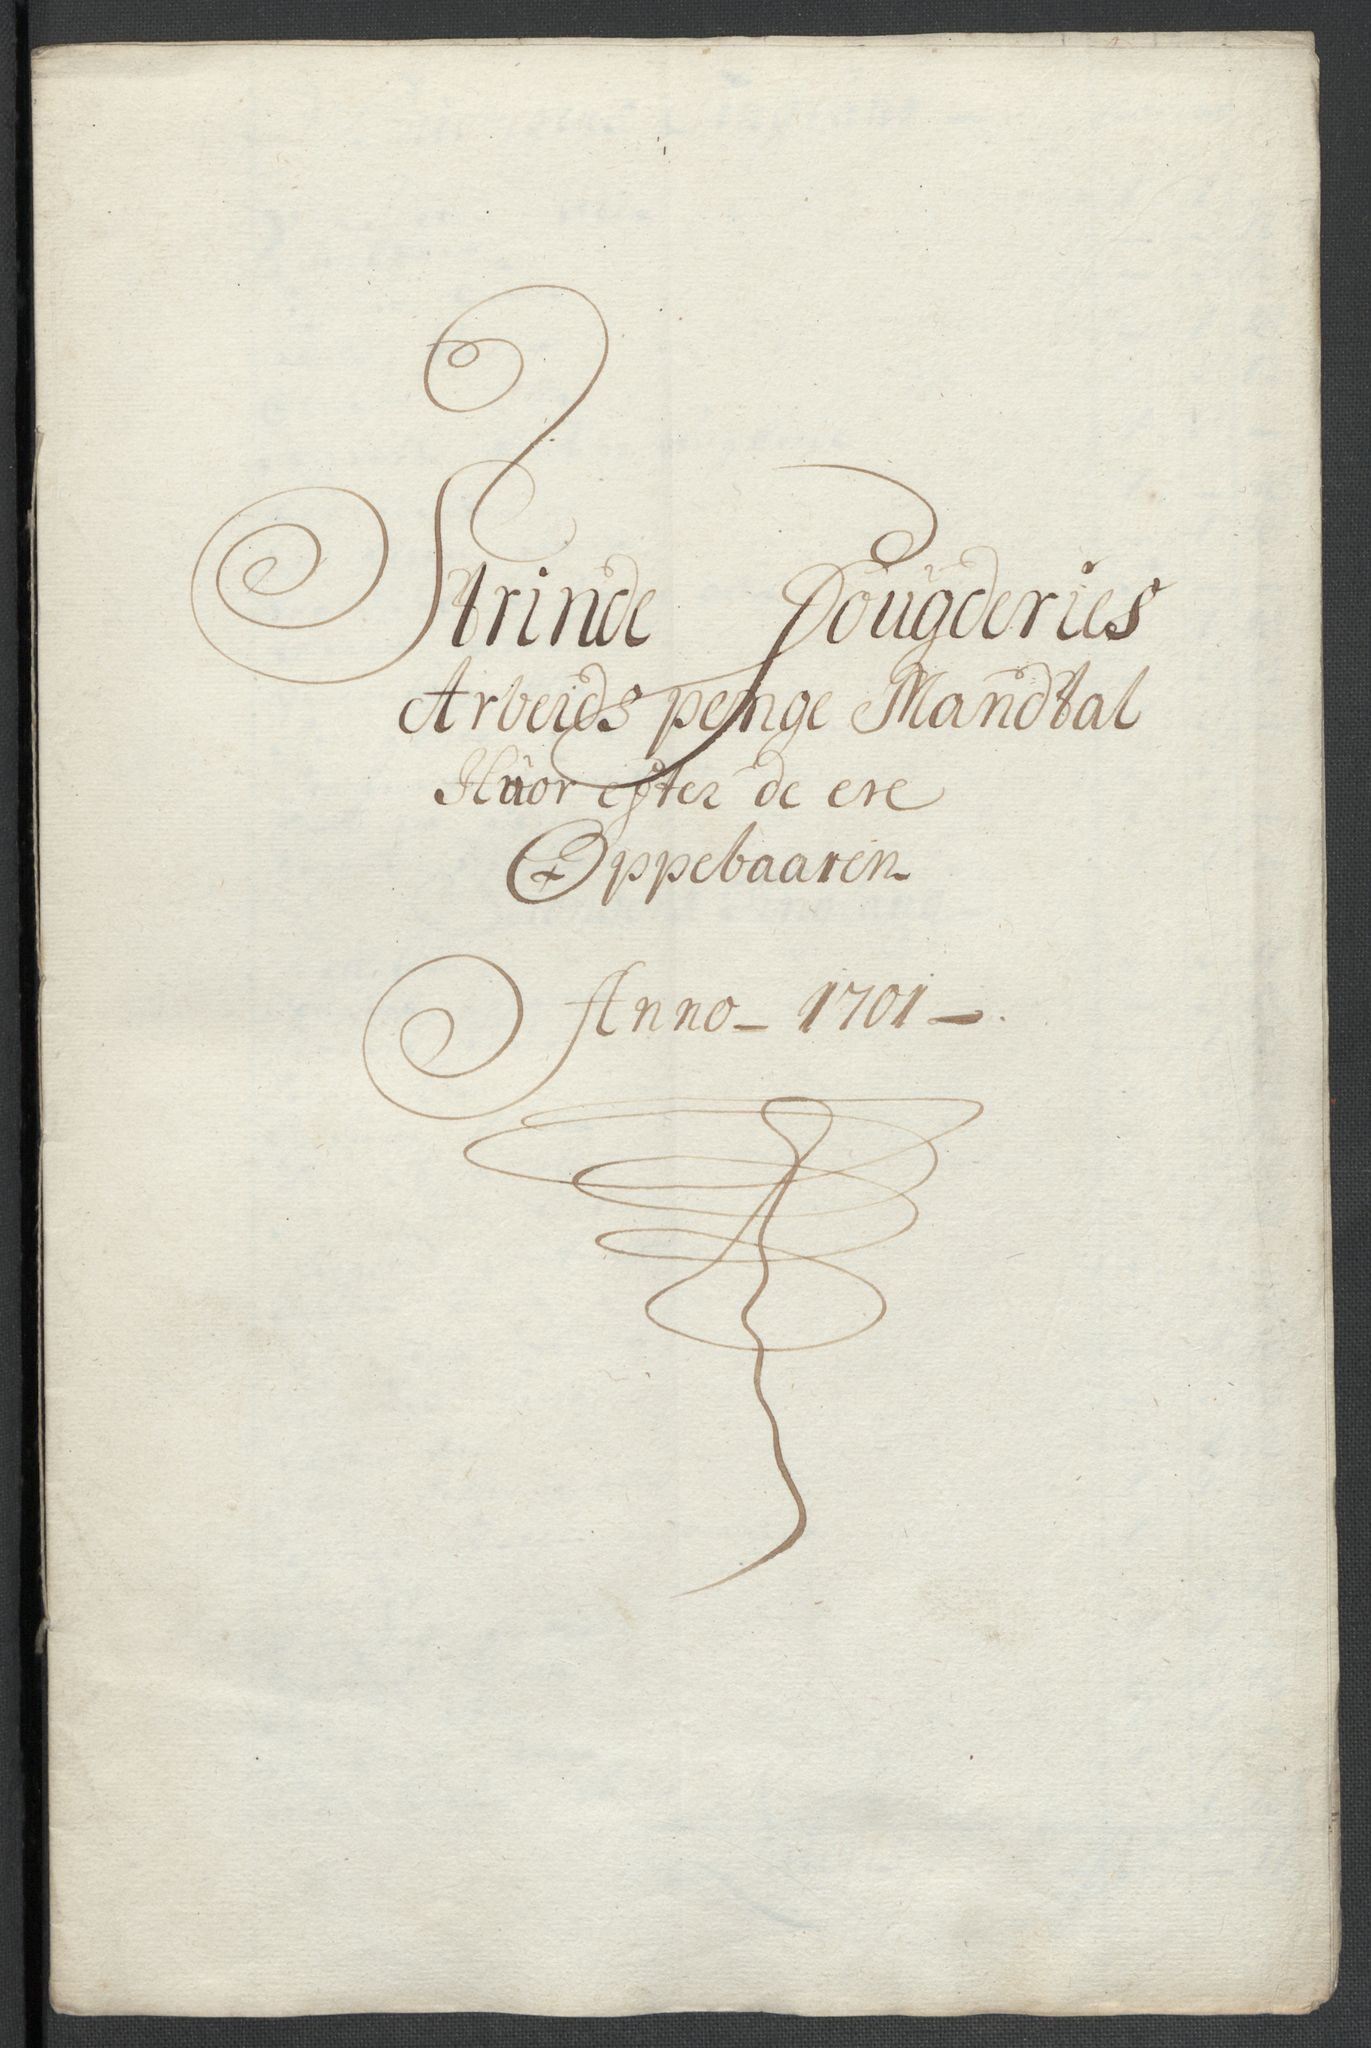 Strinde Fougderies
Arbeids penge Mandtal
Huor efter de ere
Oppebaaren
Anno 1701